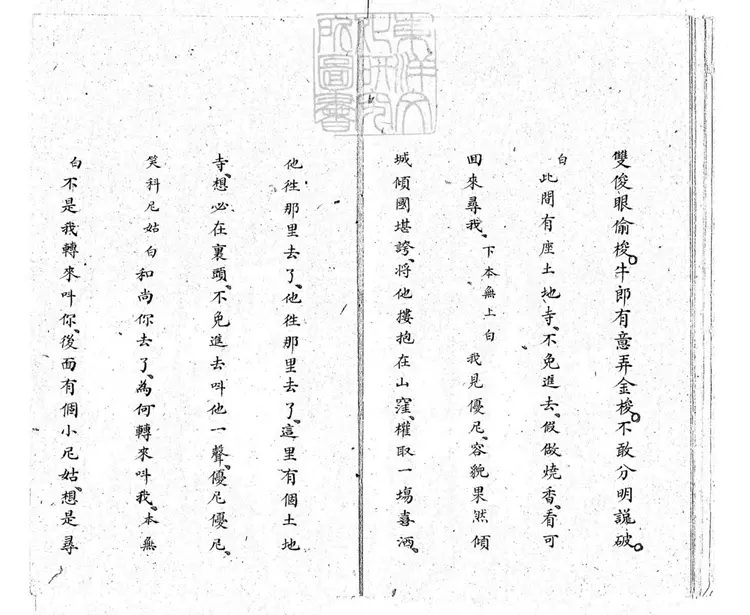 雙俊眼偷梭。牛郎有意弄金梭。不敢分明說破。
白 此間有座土地寺、不免進去、假做燒香、看可
回來尋我、 下本無上白 我見優尼、容貌果然傾
城傾國堪誇、將他摟抱在山窪、權取一塲喜洒、
他往那里去了、他往那里去了、這里有個土地
寺、想必在裏頭、不免進去呌他一聲、優尼優尼、
笑科尼姑白 和尚你去了、為何轉來呌我、本無
白 不是我轉來呌你、後面有個小尼姑、想是尋
東洋文化研究所圖書